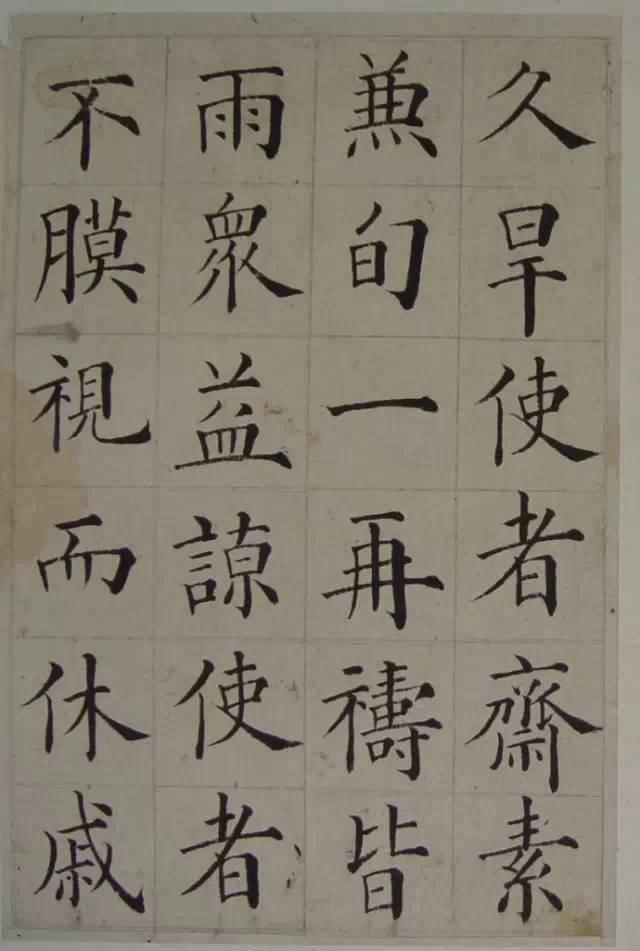 久旱使者齋素
兼旬一再禱皆
雨衆益諒使者
不膜視而休戚